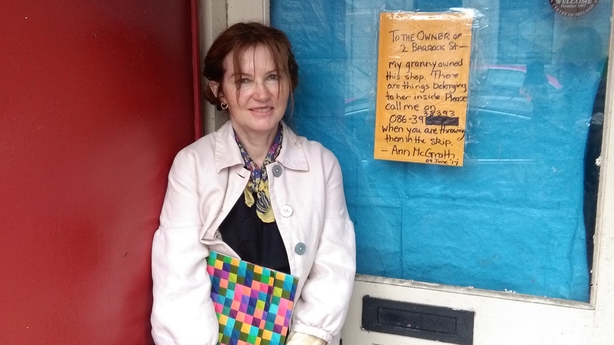 WELCOME
TO THE OWNER OF
2 BARRACK ST—
my granny owned
this shop. There
are things belonging
to her inside. Please
call me on
38393
086-39
when you are throwing
them in the skip.
— Ann McGrath
04 June '17